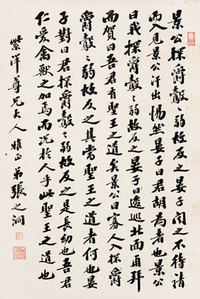 景公探爵鷇鷇弱故反之晏子聞之不待請
而入見景公汗出惕然晏子曰君胡為者也景公
曰我探爵鷇鷇弱故反之晏子逡巡北面再拜
而賀曰吾君有聖王之道矣景公曰寡人入探爵
鷇鷇弱故反之其當聖王之道者何也晏
子對曰君探爵鷇鷇弱故反之是長幼也吾君
仁愛禽獸之加焉而況於人乎此聖王之道也
紫洋尊兄大人雅正弟張之洞